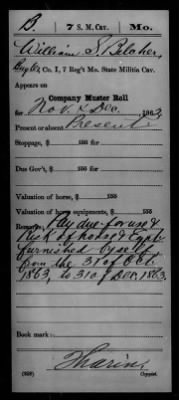 B. 7 S. M. Cav. Mo.
William S. Belcher,
Bugler, Co. I, 7 Reg't Mo. State Militia Cav.
Appears on
Company Muster Roll
for Nov. & Dec., 1863.
Present or absent Present
Stoppage, $ 100 for
Due Gov't, $ 100 for
Valuation of horse, $ 100
Valuation of horse equipments, $ 100
Remarks: Pay due for use &
Risk of horse & Eqpts
furnished by self
from the 31 of Oct.
1863, to 31 of Dec, 1863.
Book mark:
(358) Copyist.